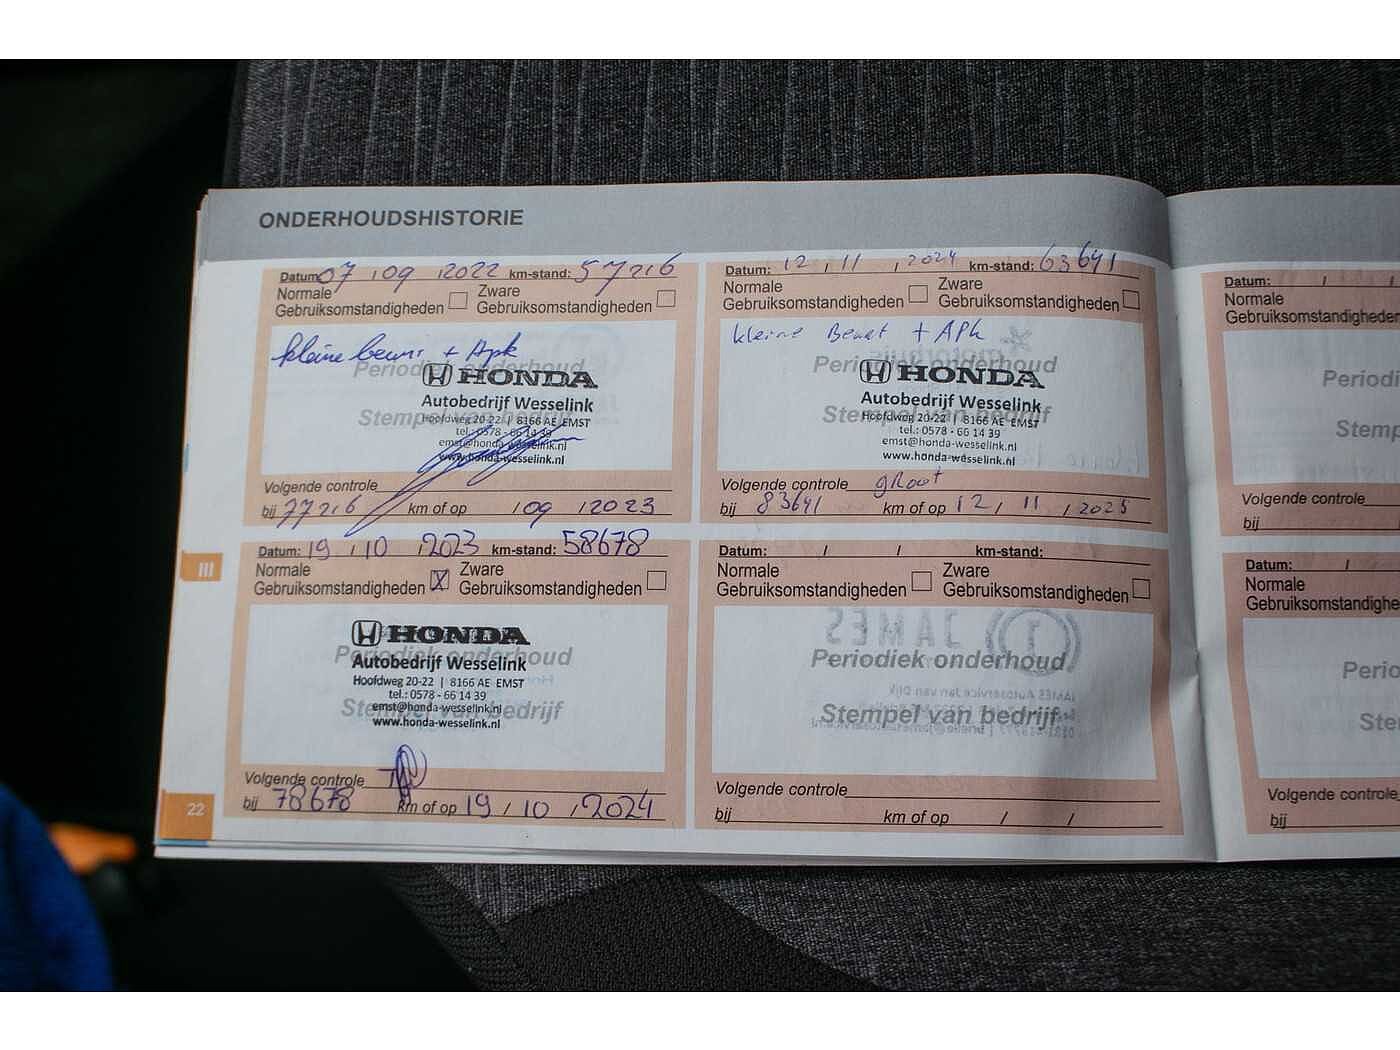 ONDERHOUDSHISTORIE
Datum: 07 / 09 / 2022 km-stand: 57216
Normale
Gebruiksomstandigheden
Zware
Gebruiksomstandigheden
kleine beurt + Apk
Periodiek onderhoud
HONDA
Autobedrijf Wesselink
Stempel van bedrijf
Hoofdweg 20-22 | 8166 AE EMST
tel.: 0578 - 66 14 39
emst@honda-wesselink.nl
www.honda-wesselink.nl
Volgende controle
bij 77216 km of op / 09 / 2023
Datum: 12 / 11 / 2024 km-stand: 63641
Normale
Gebruiksomstandigheden
Zware
Gebruiksomstandigheden
kleine Beurt + APK
Periodiek onderhoud
HONDA
Autobedrijf Wesselink
Stempel van bedrijf
Hoofdweg 20-22 | 8166 AE EMST
tel.: 0578 - 66 14 39
emst@honda-wesselink.nl
www.honda-wesselink.nl
Volgende controle groot
bij 83641 km of op 12 / 11 / 2025
Datum: 19 / 10 / 2023 km-stand: 58678
Normale
Gebruiksomstandigheden X
Zware
Gebruiksomstandigheden
HONDA
Periodiek onderhoud
Autobedrijf Wesselink
Hoofdweg 20-22 | 8166 AE EMST
tel.: 0578 - 66 14 39
emst@honda-wesselink.nl
Stempel van bedrijf
www.honda-wesselink.nl
Volgende controle
bij 78678 km of op 19 / 10 / 2024
Datum: / / km-stand:
Normale
Gebruiksomstandigheden
Zware
Gebruiksomstandigheden
JAMES
Periodiek onderhoud
Stempel van bedrijf
Volgende controle
bij km of op / /
Datum: /
Normale
Gebruiksomstandigheden
Periodi
Stemp
Volgende controle
bij
Datum: /
Normale
Gebruiksomstandighe
Perio
Ste
Volgende controle
bij
III
22